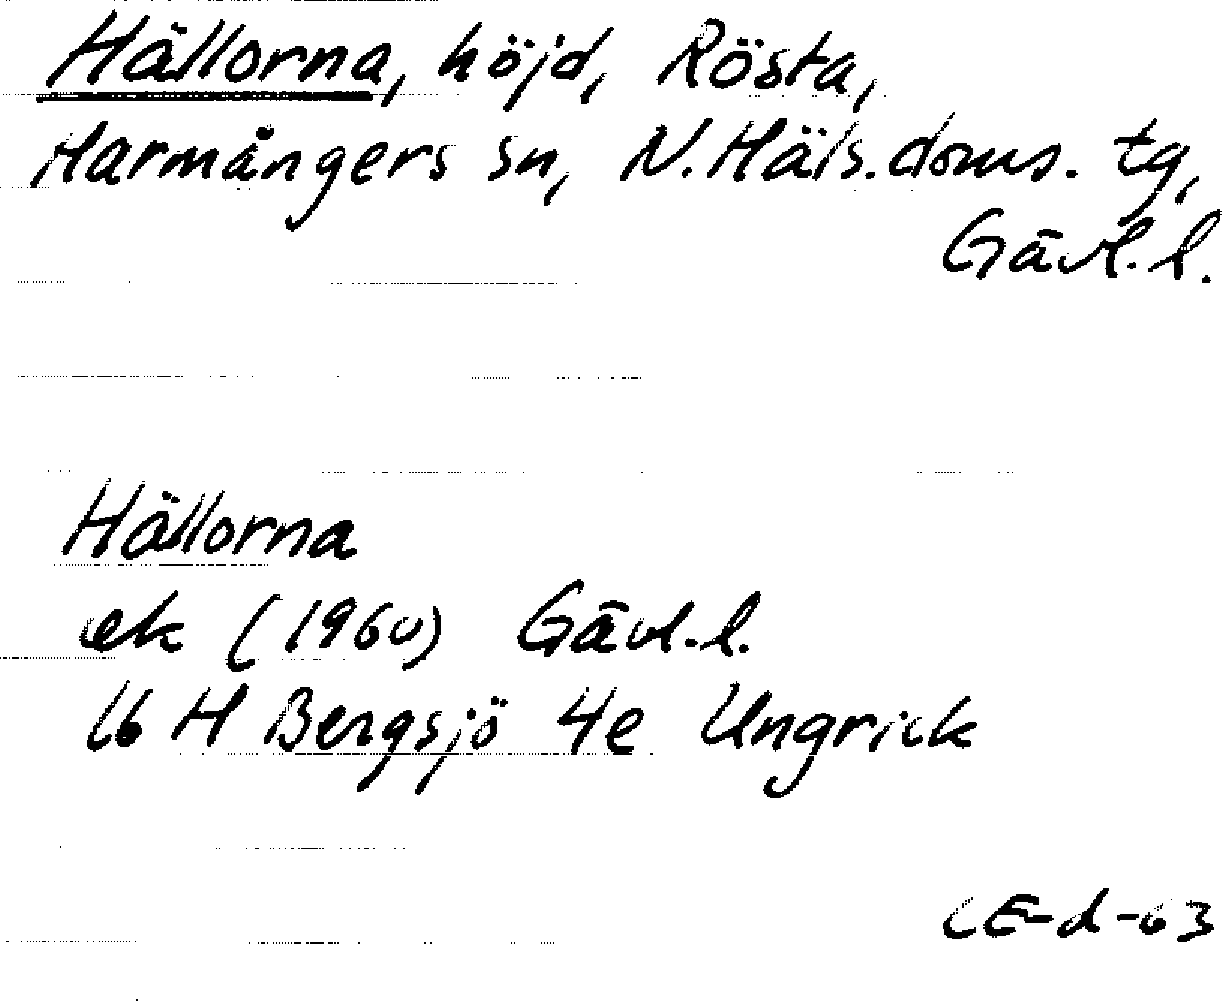 Hällorna, höjd, Rösta,
Harmångers sn, N. Häls. doms. tg,
Gävl. l.
Hällorna
ek (1960) Gävl. l.
16 H Bergsjö 4e Ungrick
CE-d-63